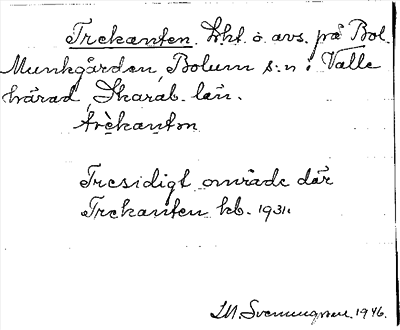 Trekanten. Lht. o. avs. på Bol.
Munkgården, Bolum s:n i Valle
härad, Skarab. län.
trèkantɷn
Tresidigt område där
Trekanten kb. 1931.
M. Svenungsson. 1946.